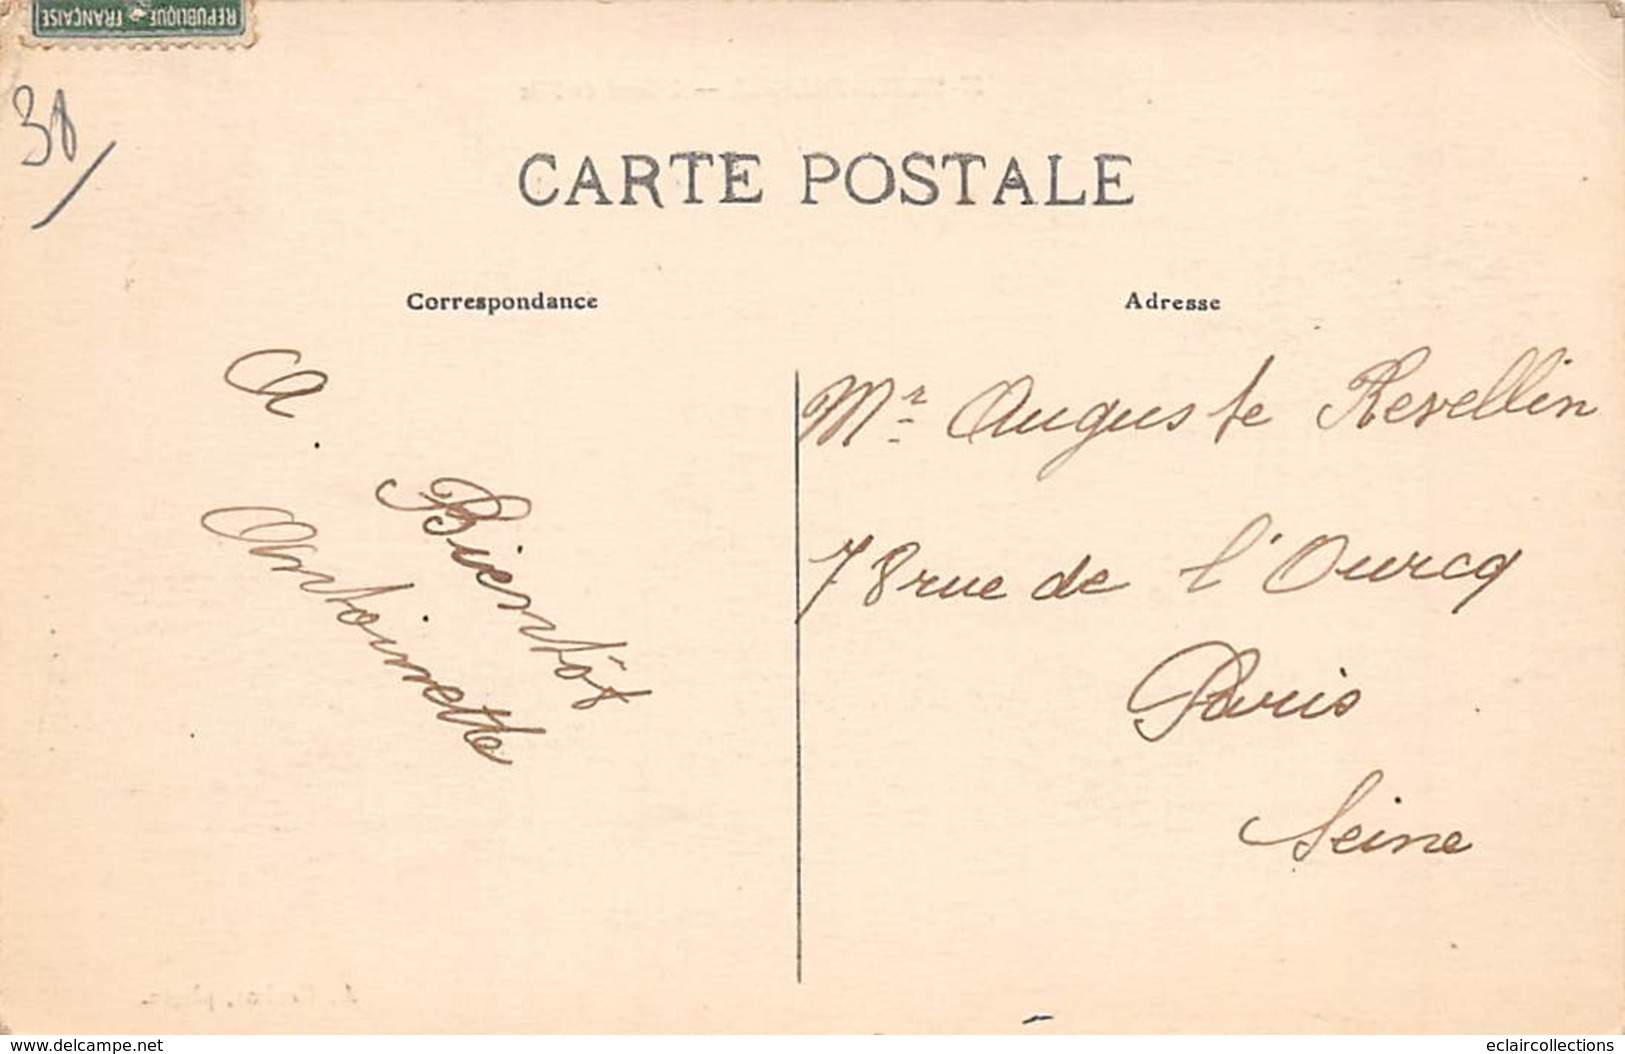 REPUBLIQUE FRANÇAISE
38/
CARTE POSTALE
Correspondance
Adresse
A
Bientôt
Antoinette
Mr Auguste Revellin
78 rue de l'Ourcq
Paris
Seine
www.delcampe.net
eclaircollections